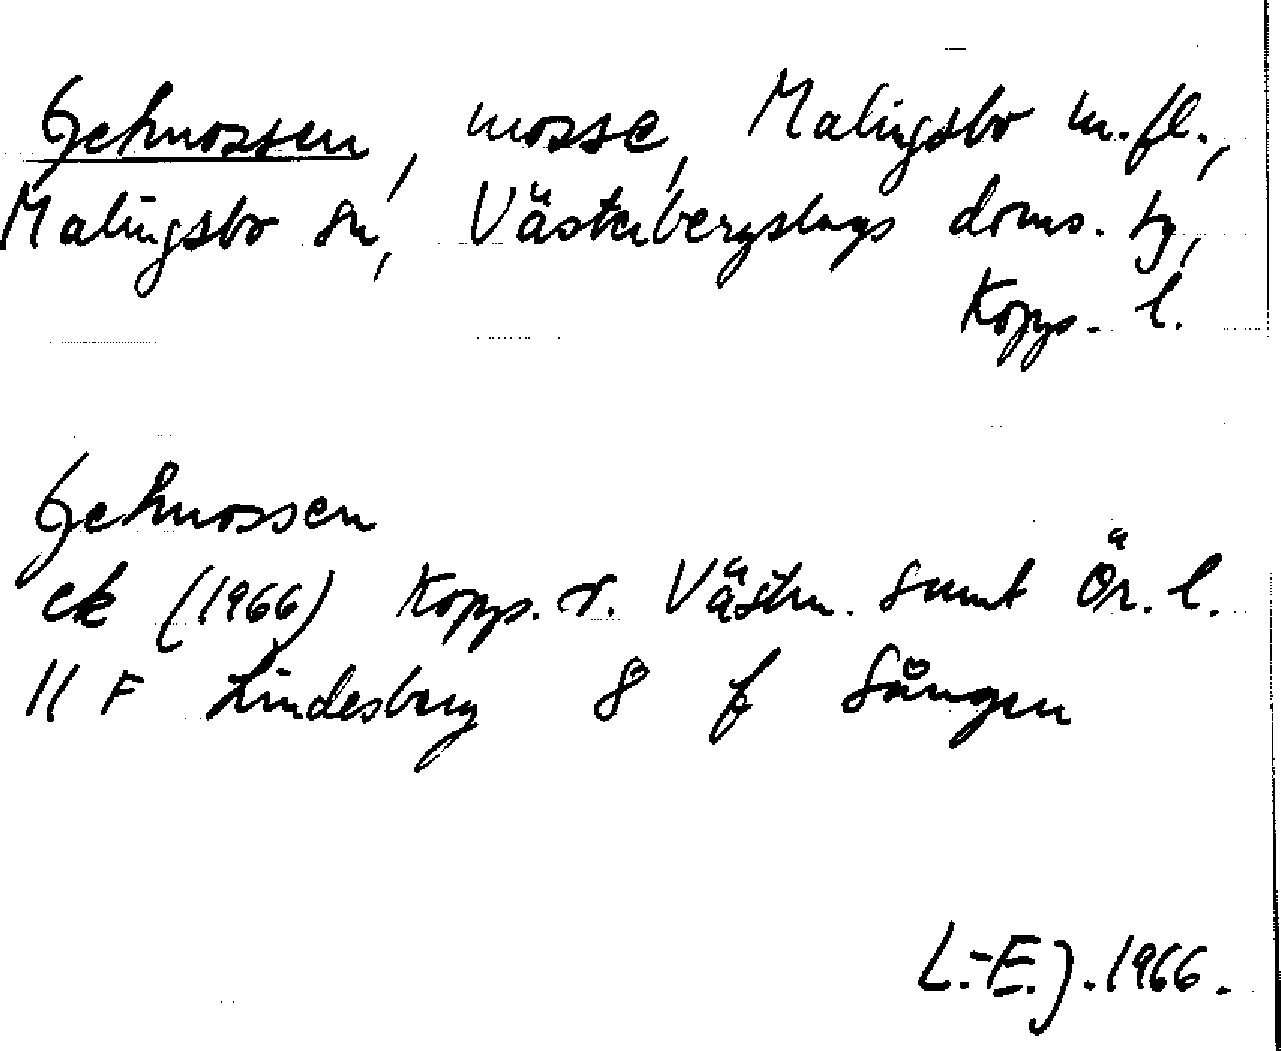 Getmossen, mosse, Malingsbo m.fl.,
Malingsbo sn, Västerbergslags doms. tg,
Kopp. l.
Getmossen
ek (1966) Kopp. o. Västm. samt Ör. l.
11 F Lindesberg 8 f Sången
L.-E.J. 1966.